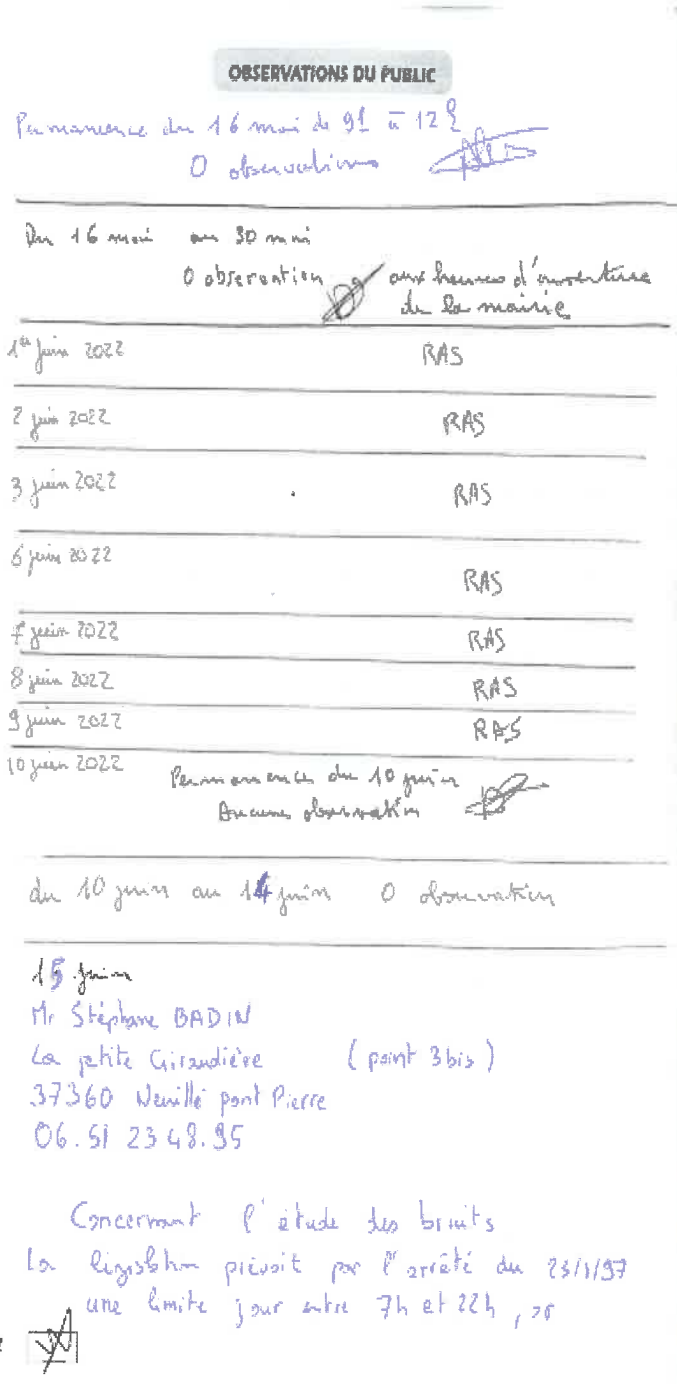 OBSERVATIONS DU PUBLIC
Permanence du 16 mai de 9h à 12h
0 observations
Du 16 mai au 30 mai
0 observation aux heures d'ouverture
de la mairie
1er juin 2022 RAS
2 juin 2022 RAS
3 juin 2022 RAS
6 juin 2022 RAS
7 juin 2022 RAS
8 juin 2022 RAS
9 juin 2022 RAS
10 juin 2022 Permanence du 10 juin
Aucune observation
du 10 juin au 14 juin 0 observation
15 juin
Mr Stéphane BADIN
La petite Giraudière (point 3bis)
37360 Neuillé pont Pierre
06.51 23 48.95
Concernant l'étude des bruits
La législation prévoit par l'arrêté du 23/1/97
une limite jour entre 7h et 22h, or